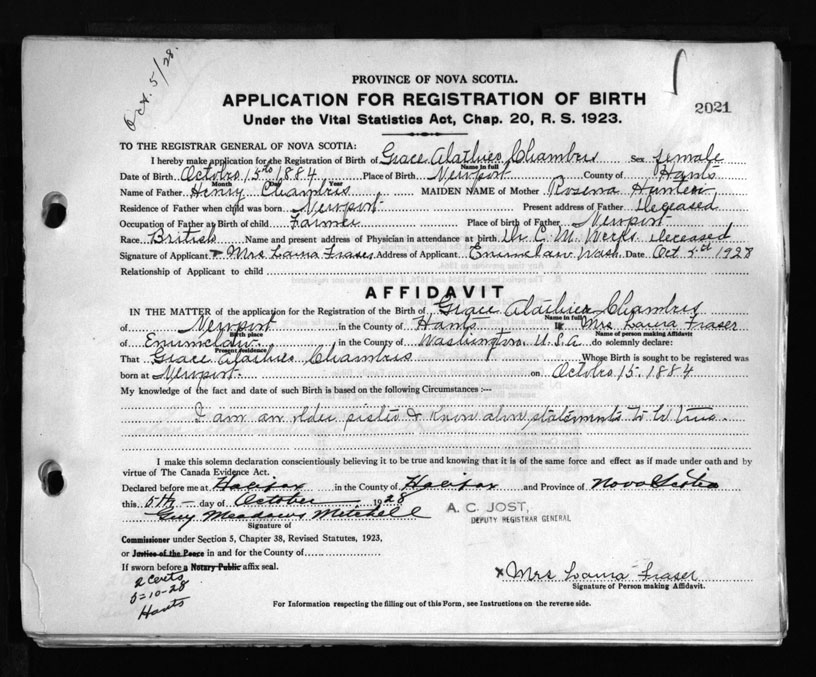 Oct. 5/28.
PROVINCE OF NOVA SCOTIA.
APPLICATION FOR REGISTRATION OF BIRTH
2021
Under the Vital Statistics Act, Chap. 20, R. S. 1923.
TO THE REGISTRAR GENERAL OF NOVA SCOTIA:
I hereby make application for the Registration of Birth of Grace Chambers Sex female
Name in full
Date of Birth October 15th 1884 Place of Birth Newport County of Hants
Month Day Year
Name of Father Henry Chambers MAIDEN NAME of Mother Hunter
Residence of Father when child was born Newport Present address of Father Deceased
Occupation of Father at Birth of child Farmer Place of birth of Father Newport
Race British Name and present address of Physician in attendance at birth Dr. C. M. Deceased
Signature of Applicant x Mrs Laura Fraser Address of Applicant Enumclaw Wash. Date Oct 5th 1928
Relationship of Applicant to child
AFFIDAVIT
IN THE MATTER of the application for the Registration of the Birth of Grace Chambers
Name in full
of Newport in the County of Hants I, Mrs Laura Fraser
Birth place Name of person making Affidavit
of Enumclaw in the County of Washington U.S.A do solemnly declare:
Present residence
That Grace Chambers Whose Birth is sought to be registered was
born at Newport on October 15. 1884
My knowledge of the fact and date of such Birth is based on the following Circumstances :—
I am an older sister & know above statements to be true.
I make this solemn declaration conscientiously believing it to be true and knowing that it is of the same force and effect as if made under oath and by
virtue of The Canada Evidence Act.
Declared before me at Halifax in the County of Halifax and Province of Nova Scotia
this 5th day of October 1928
Guy Meadows Mitchell
A. C. JOST,
DEPUTY REGISTRAR GENERAL
Signature of
Commissioner under Section 5, Chapter 38, Revised Statutes, 1923,
or Justice of the Peace in and for the County of
If sworn before a Notary Public affix seal.
2 Certs
5-10-28
Hants
x Mrs Laura Fraser
Signature of Person making Affidavit.
For Information respecting the filling out of this Form, see Instructions on the reverse side.